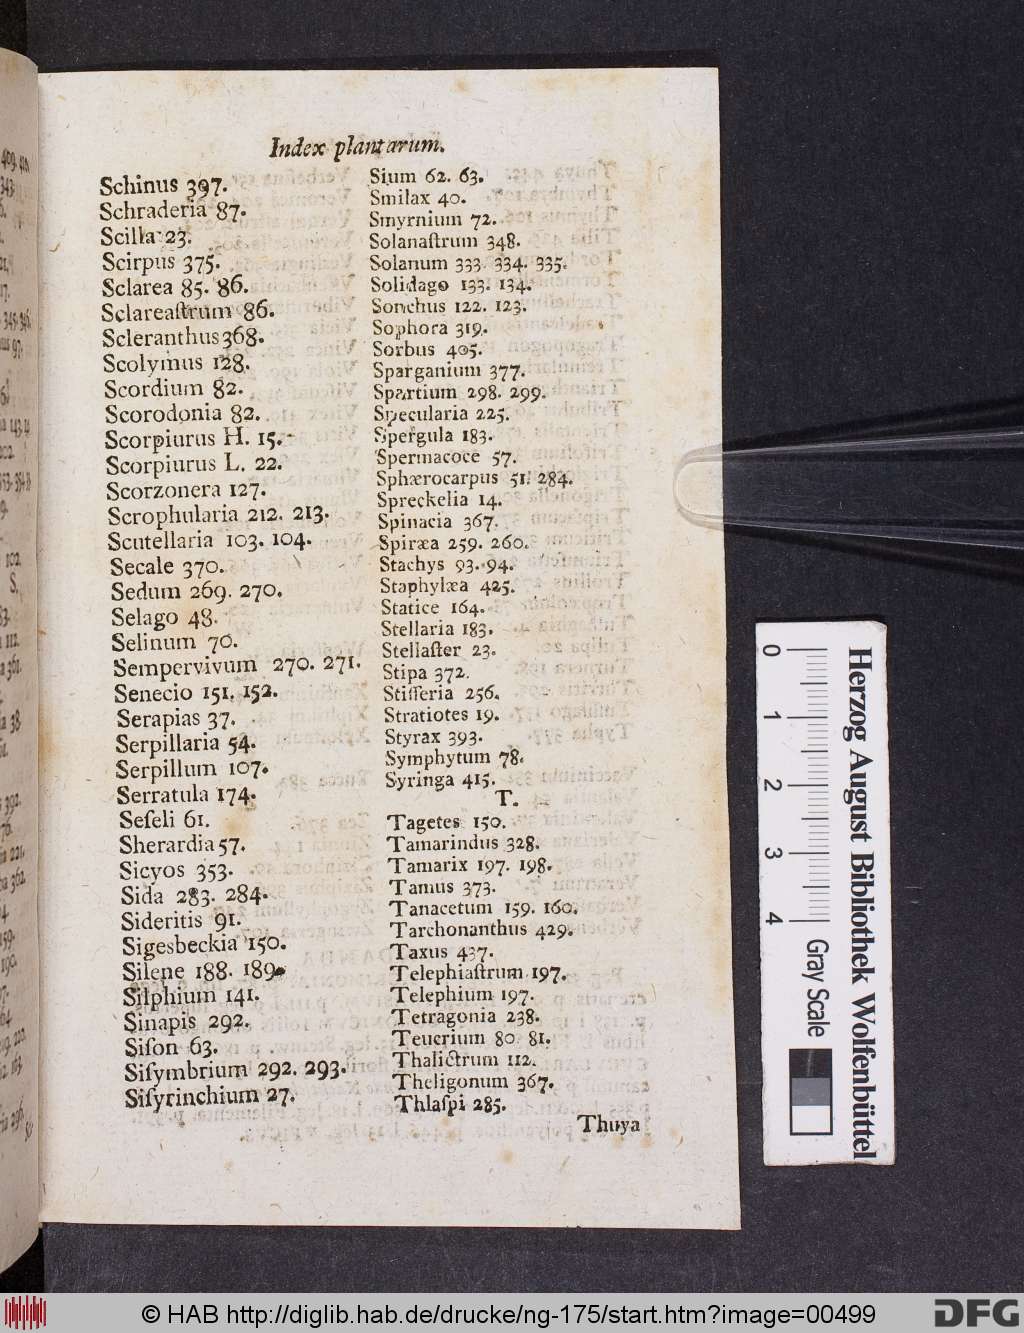 Index plantarum.
Schinus 397.
Schraderia 87.
Scilla 23.
Scirpus 375.
Sclarea 85. 86.
Sclareaſtrum 86.
Scleranthus 368.
Scolymus 128.
Scordium 82.
Scorodonia 82.
Scorpiurus H. 15.
Scorpiurus L. 22.
Scorzonera 127.
Scrophularia 212. 213.
Scutellaria 103. 104.
Secale 370.
Sedum 269. 270.
Selago 48.
Selinum 70.
Sempervivum 270. 271.
Senecio 151. 152.
Serapias 37.
Serpillaria 54.
Serpillum 107.
Serratula 174.
Seſeli 61.
Sherardia 57.
Sicyos 353.
Sida 283. 284.
Sideritis 91.
Sigesbeckia 150.
Silene 188. 189.
Silphium 141.
Sinapis 292.
Siſon 63.
Siſymbrium 292. 293.
Siſyrinchium 27.
Sium 62. 63.
Smilax 40.
Smyrnium 72.
Solanaſtrum 348.
Solanum 333. 334. 335.
Solidago 133. 134.
Sonchus 122. 123.
Sophora 319.
Sorbus 405.
Sparganium 377.
Spartium 298. 299.
Specularia 225.
Spergula 183.
Spermacoce 57.
Sphærocarpus 51. 284.
Spreckelia 14.
Spinacia 367.
Spiræa 259. 260.
Stachys 93. 94.
Staphylæa 425.
Statice 164.
Stellaria 183.
Stellaſter 23.
Stipa 372.
Stiſſeria 256.
Stratiotes 19.
Styrax 393.
Symphytum 78.
Syringa 415.
T.
Tagetes 150.
Tamarindus 328.
Tamarix 197. 198.
Tamus 373.
Tanacetum 159. 160.
Tarchonanthus 429.
Taxus 437.
Telephiaſtrum 197.
Telephium 197.
Tetragonia 238.
Teucrium 80. 81.
Thalictrum 112.
Theligonum 367.
Thlaſpi 285.
Thuya
0 1 2 3 4 Gray Scale
Herzog August Bibliothek Wolfenbüttel
© HAB http://diglib.hab.de/drucke/ng-175/start.htm?image=00499
DFG